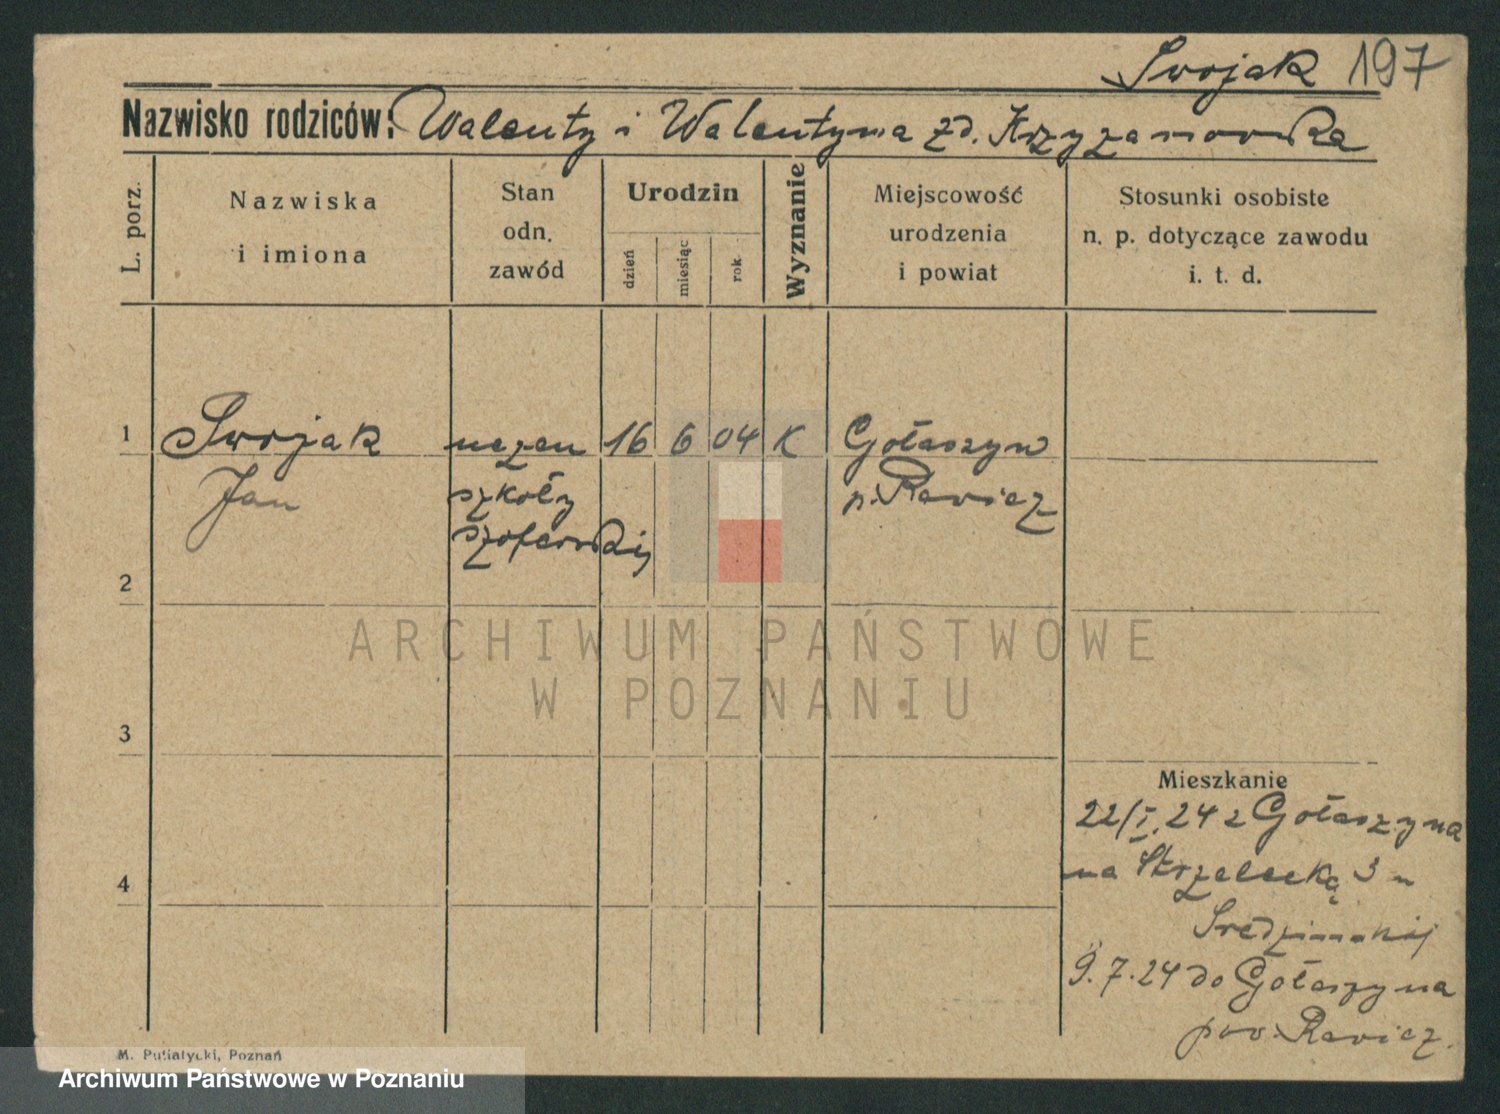 Swojak 197
Nazwisko rodziców: Walenty i Walentyna zd. Krzyżanowska
L. porz.
Nazwiska
i imiona
Stan
odn.
zawód
Urodzin
dzień
miesiąc
rok
Wyznanie
Miejscowość
urodzenia
i powiat
Stosunki osobiste
n. p. dotyczące zawodu
i. t. d.
1 Swojak uczen 16 6 04 K Gołaszyn
Jan szkoły p. Rawicz
szoferskij
2
ARCHIWUM PAŃSTWOWE
W POZNANIU
3
Mieszkanie
22/I.24 z Gołaszyna
4
na Strzelecką 3 u
Sredzinskij
9.7.24 do Gołaszyna
pow. Rawicz.
M. Putiatycki, Poznań
Archiwum Państwowe w Poznaniu